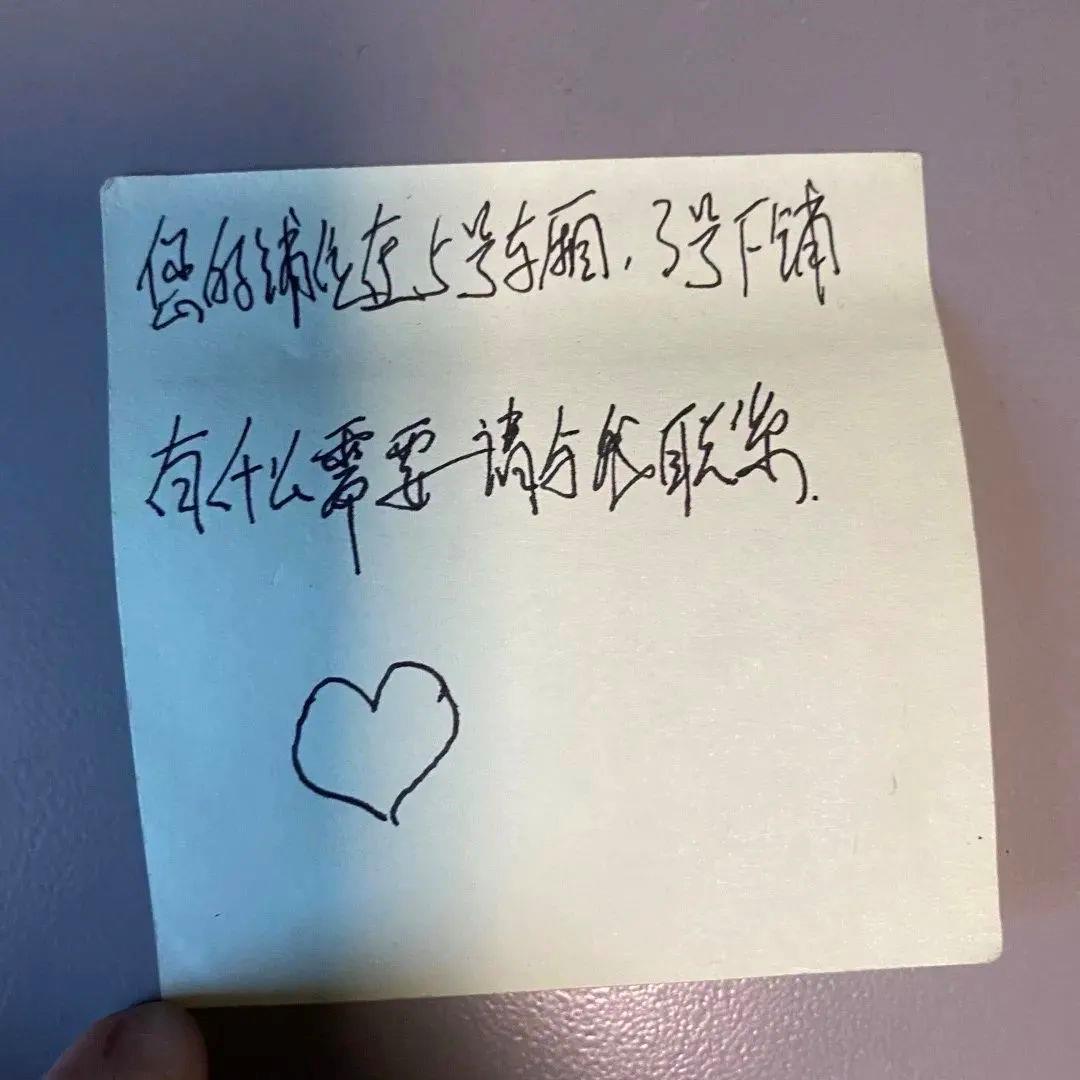 您的铺位在5号车厢，3号下铺
有什么需要请与我联系.